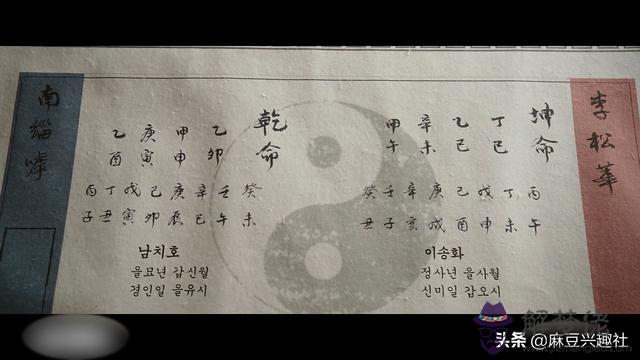 南緇
乾命
乙 庚 甲 乙
酉 寅 申 卯
丙 丁 戊 己 庚 辛 壬 癸
子 丑 寅 卯 辰 巳 午 未
남치호
을묘년 갑신월
경인일 을유시
李松華
坤命
甲 辛 乙 丁
午 未 巳 巳
癸 壬 辛 庚 己 戊 丁 丙
丑 子 亥 戌 酉 申 未 午
이송화
정사년 을사월
신미일 갑오시
解梦佬
头条 @麻豆兴趣社